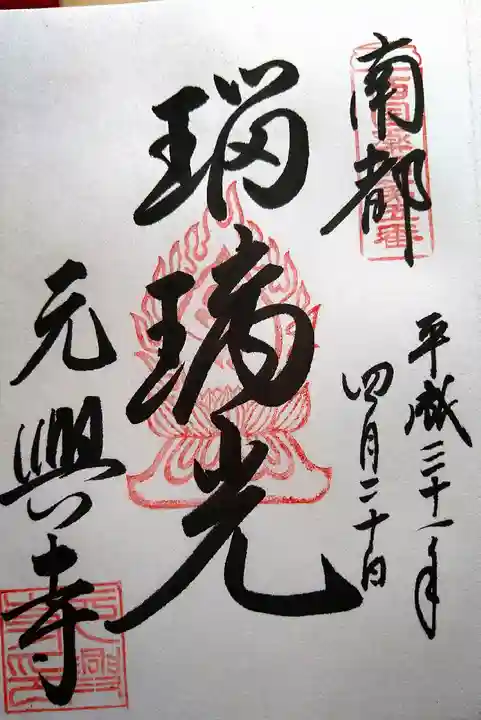 南都
平成三十一年
四月二十日
瑠璃光
元興寺